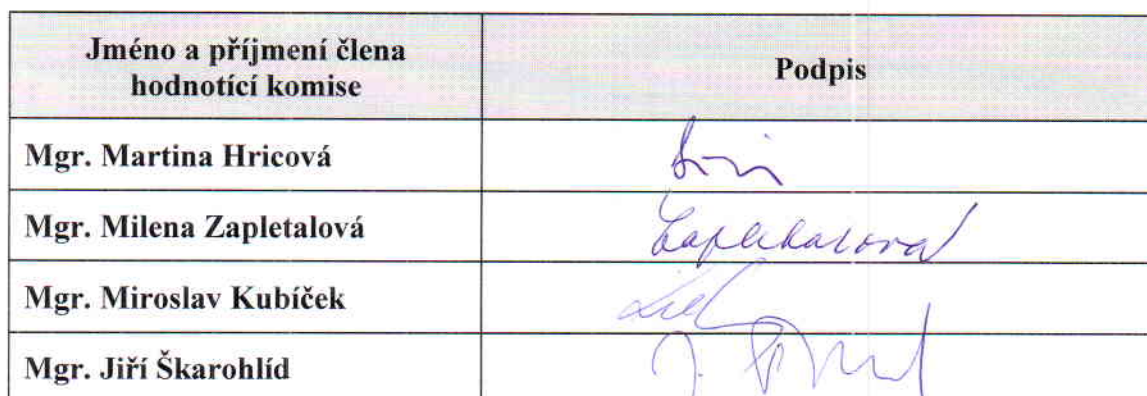 Jméno a příjmení člena
hodnotící komise
Podpis
Mgr. Martina Hricová
Mgr. Milena Zapletalová
Zapletalová
Mgr. Miroslav Kubíček
Mgr. Jiří Škarohlíd